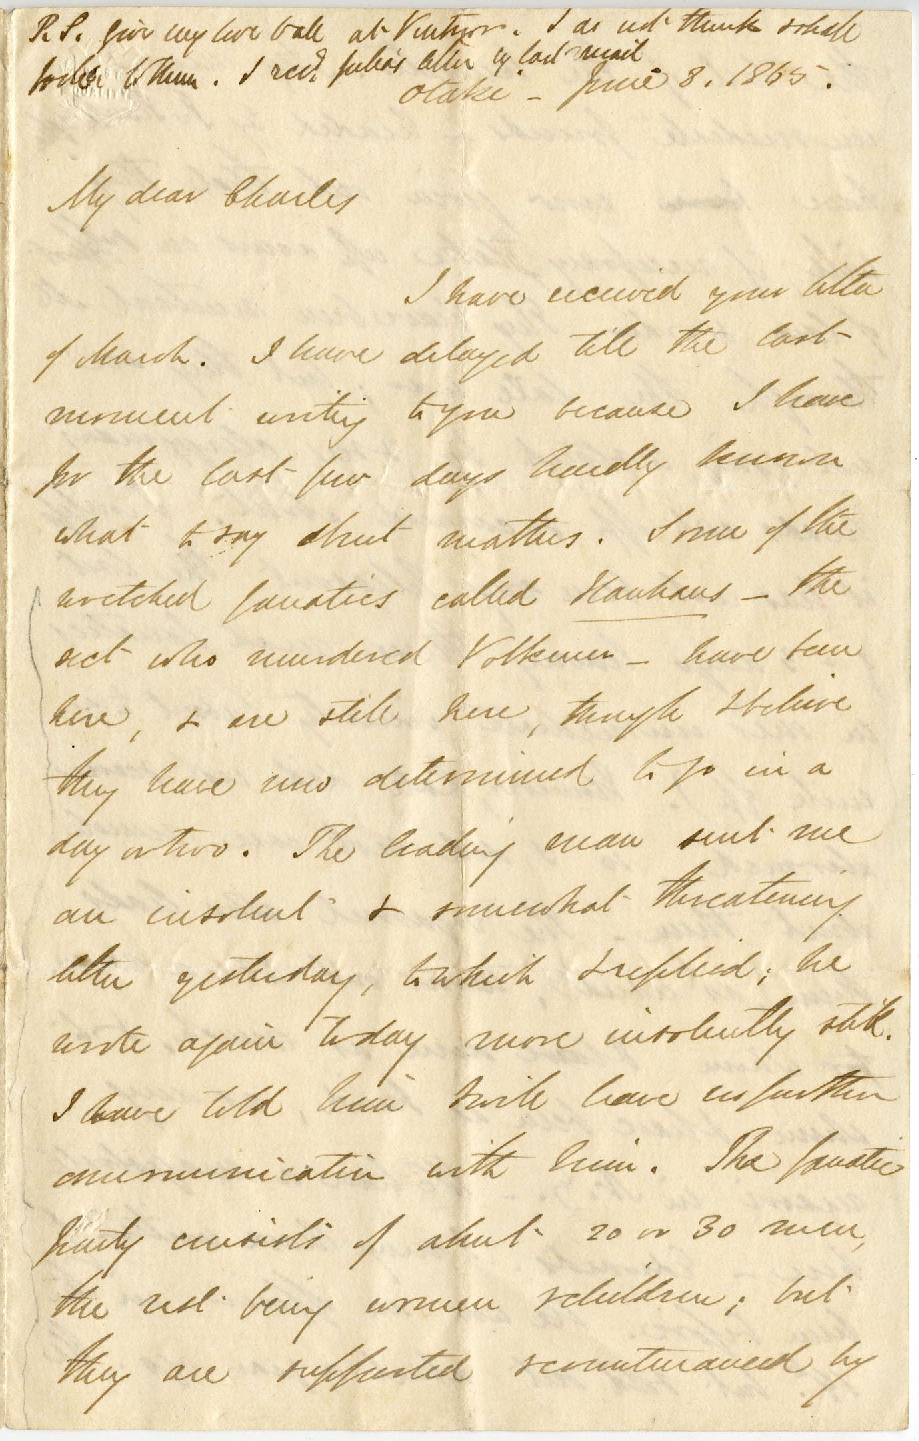 P.S. give my love to all at Ventnor. I do not think I shall
write to them. I recd. Julia's letter by last mail
Otaki - June 8. 1865.
My dear Charles
I have received your letter
of March. I have delayed till the last
moment writing to you because I have
for the last few days hardly known
what to say about matters. Some of the
wretched fanatics called Hauhaus - the
sect who murdered Volkner - have been
here, & are still here, though I believe
they have now determined to go in a
day or two. The leading man sent me
an insolent & somewhat threatening
letter yesterday, to which I replied; he
wrote again today more insolently still.
I have told him I will have no further
communication with him. The fanatic
party consists of about 20 or 30 men,
the rest being women & children; but
they are supported & countenanced by